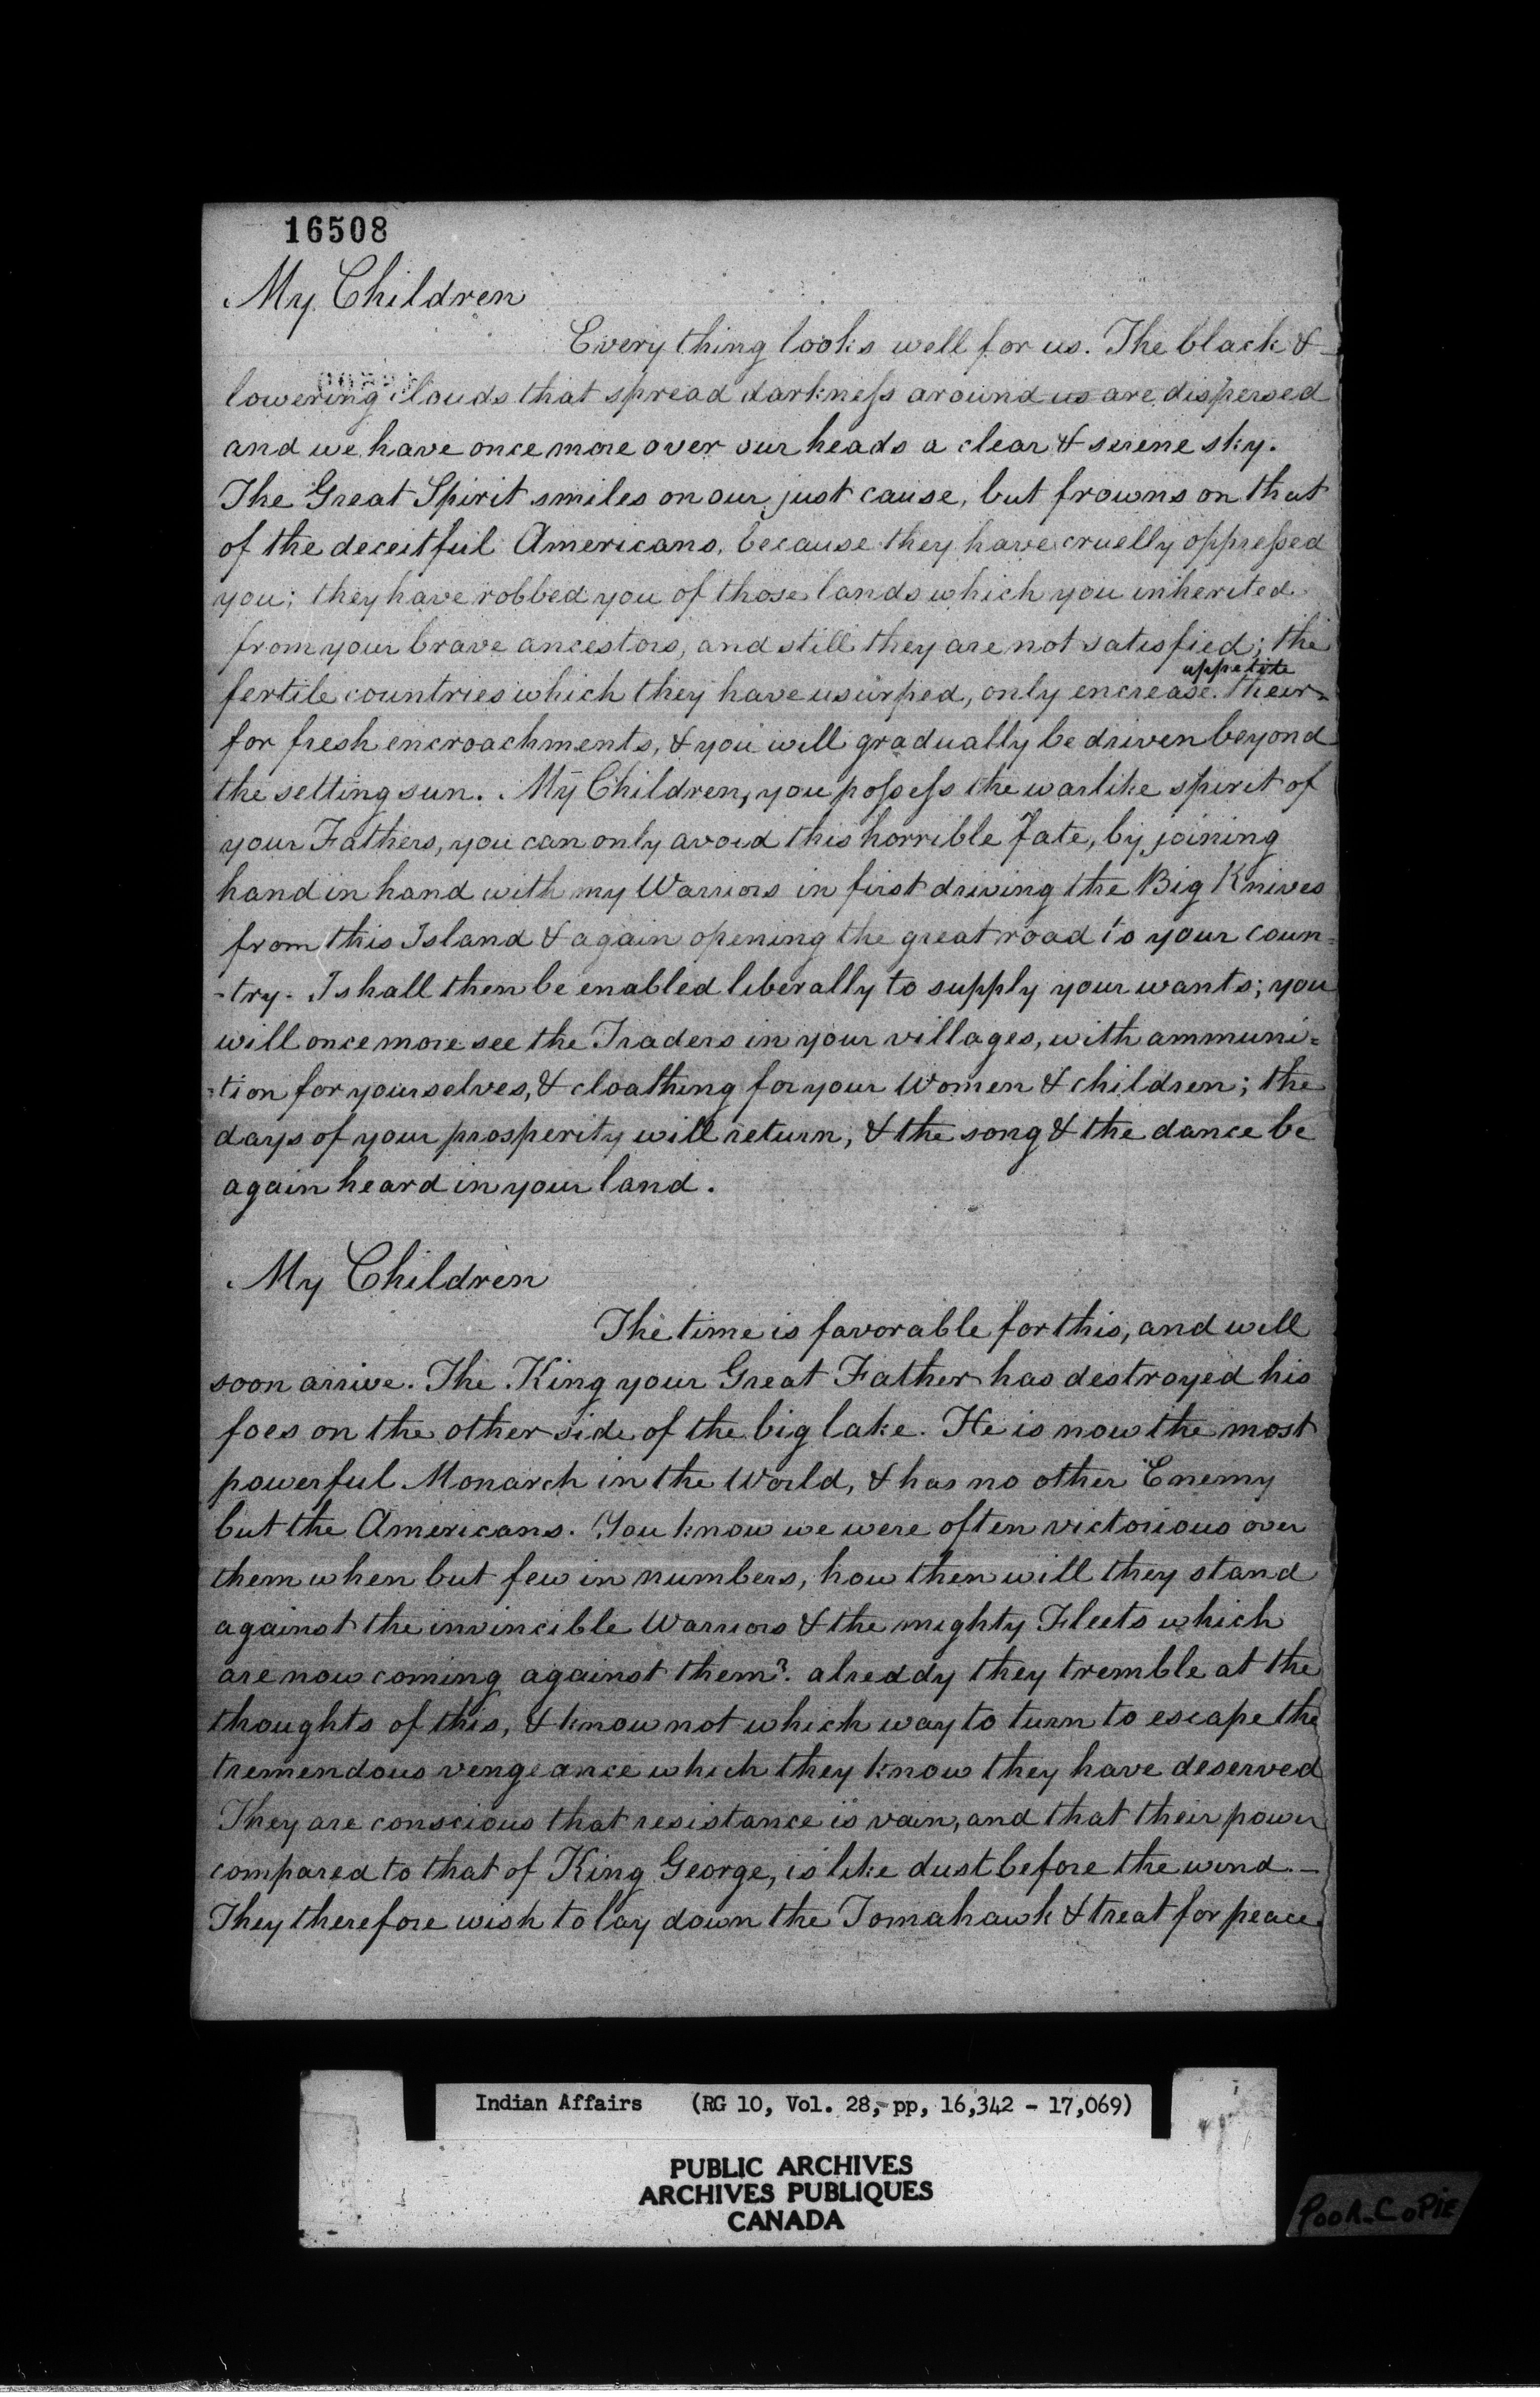 16508
My Children
Everything looks well for us. The black &
lowering clouds that spread darkness around us are dispersed
and we have once more over our heads a clear & serene sky.
The Great Spirit smiles on our just cause, but frowns on that
of the deceitful Americans, because they have cruelly oppressed
you; they have robbed you of those lands which you inherited
from your brave ancestors, and still they are not satisfied; the
appetite
fertile countries which they have usurped, only encrease their
for fresh encroachments, & you will gradually be driven beyond
the setting sun. My Children, you possess the warlike spirit of
your Fathers, you can only avoid this horrible Fate, by joining
hand in hand with my Warriors in first driving the Big Knives
from this Island & again opening the great road to your coun=
-try. I shall then be enabled liberally to supply your wants; you
will once more see the Traders in your villages, with ammuni=
=tion for yourselves, & cloathing for your Women & children; the
days of your prosperity will return, & the song & the dance be
again heard in your land.
My Children
The time is favorable for this, and will
soon arrive. The King your Great Father has destroyed his
foes on the other side of the big lake. He is now the most
powerful Monarch in the World, & has no other Enemy
but the Americans. You know we were often victorious over
them when but few in numbers, how then will they stand
against the invincible Warriors & the mighty Fleets which
are now coming against them? alreddy they tremble at the
thoughts of this, & know not which way to turn to escape the
tremendous vengeance which they know they have deserved
They are conscious that resistance is vain, and that their power
compared to that of King George, is like dust before the wind. —
They therefore wish to lay down the Tomahawk & treat for peace.
Indian Affairs (RG 10, Vol. 28, pp, 16,342 - 17,069)
PUBLIC ARCHIVES
ARCHIVES PUBLIQUES
CANADA
Poor Copie